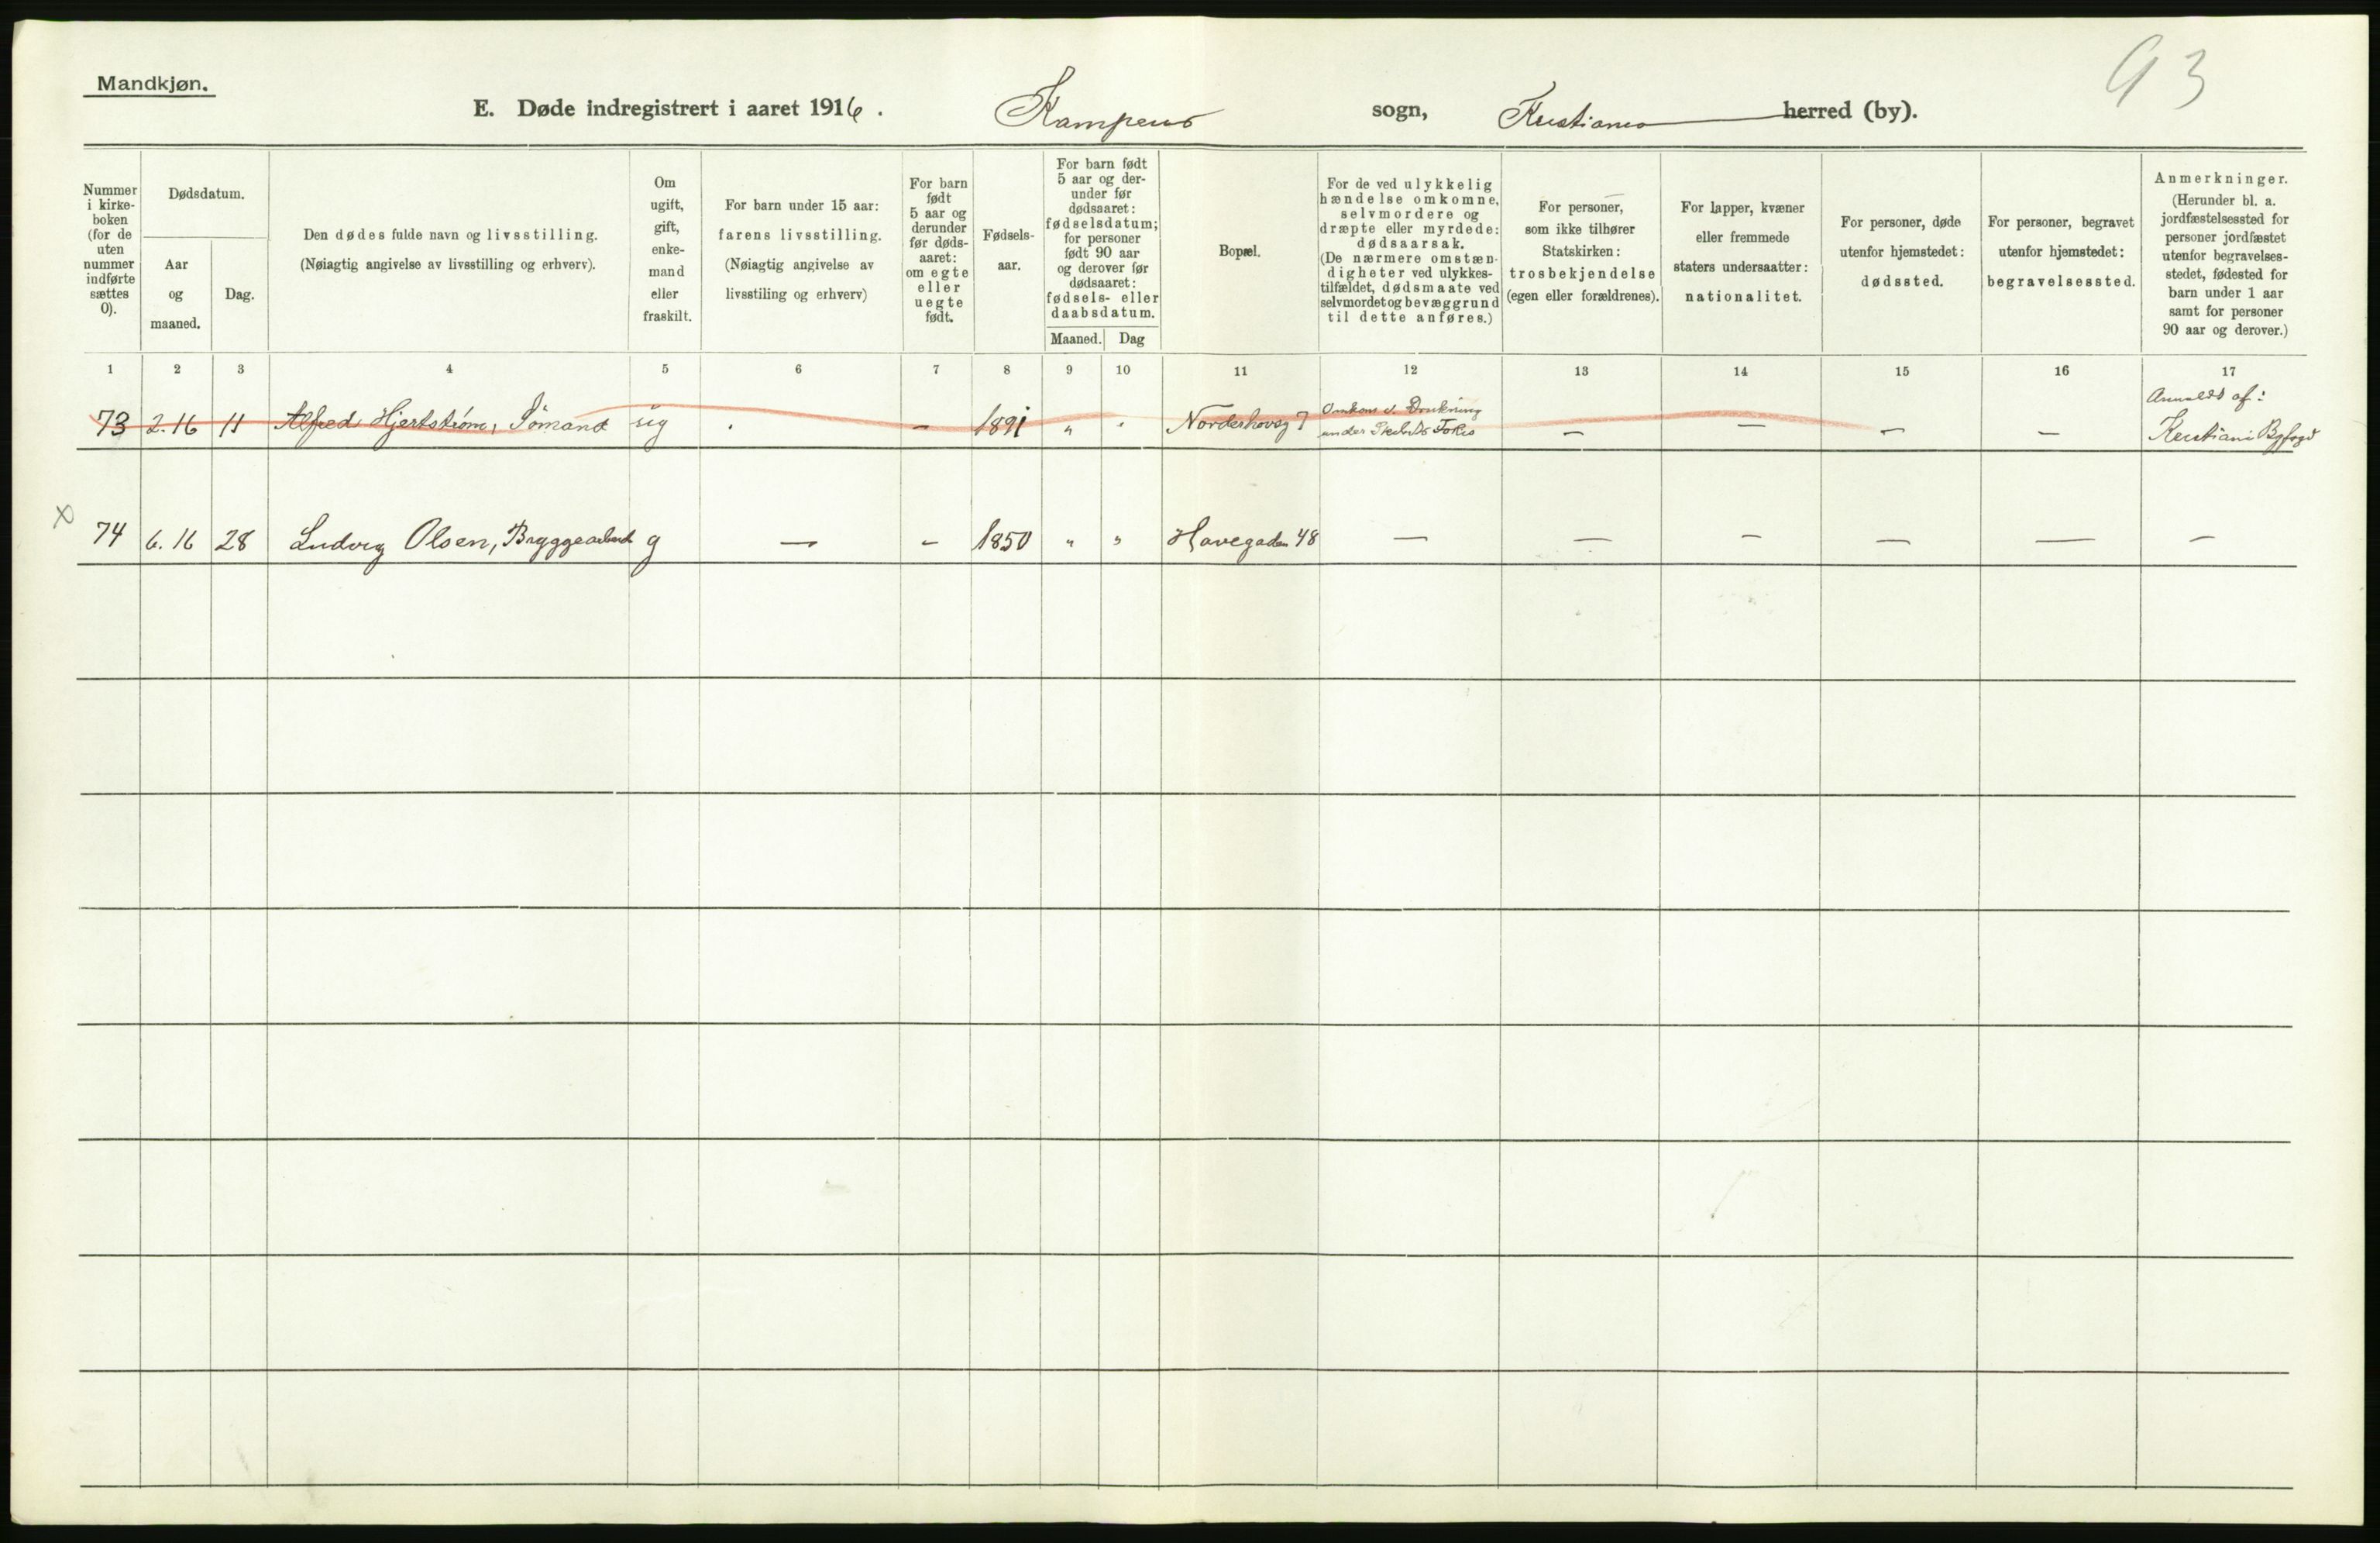 93
Mandkjøn.
E. Døde indregistrert i aaret 1916. Kampens sogn, Kristiania herred (by).
Nummer
i kirke-
boken
(for de
uten
nummer
indførte
sættes
0).
Dødsdatum.
Aar
og
maaned.
Dag.
Den dødes fulde navn og livsstilling.
(Nøiagtig angivelse av livsstilling og erhverv).
Om
ugift,
gift,
enke-
mand
eller
fraskilt.
For barn under 15 aar:
farens livsstilling.
(Nøiagtig angivelse av
livsstiling og erhverv)
For barn
født
5 aar og
derunder
før døds-
aaret:
om egte
eller
uegte
født.
Fødsels-
aar.
For barn født
5 aar og der-
under før
dødsaaret:
fødselsdatum;
for personer
født 90 aar
og derover før
dødsaaret:
fødsels- eller
daabsdatum.
Maaned. Dag
Bopæl.
For de ved ulykkelig
hændelse omkomne,
selvmordere og
dræpte eller myrdede:
dødsaarsak.
(De nærmere omstæn-
digheter ved ulykkes-
tilfældet, dødsmaate ved
selvmordet og bevæggrund
til dette anføres.)
For personer,
som ikke tilhører
Statskirken:
trosbekjendelse
(egen eller forældrenes).
For lapper, kvæner
eller fremmede
staters undersaatter:
nationalitet.
For personer, døde
utenfor hjemstedet:
dødssted.
For personer, begravet
utenfor hjemstedet:
begravelsessted.
Anmerkninger.
(Herunder bl. a.
jordfæstelsessted for
personer jordfæstet
utenfor begravelses-
stedet, fødested for
barn under 1 aar
samt for personer
90 aar og derover.)
1 2 3 4 5 6 7 8 9 10 11 12 13 14 15 16 17
73 2.16 11 Alfred Hjertstrøm, Sömand ug . – 1891 " " Norderhovsg 7 Omkom v. Drukning — — — — Anmeldt af:
under Skibets Forlis Kristiania Byfogd
x 74 6.16 28 Ludvig Olsen, Bryggearbeid g — – 1850 " " Havegaden 48 — — — — — —